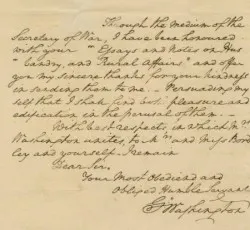 Through the medium of the
Secretary of War, I have been honoured
with your "Essays and Notes on Hus
bandry, and Rural Affairs" and offer
you my sincere thanks for your kindness
in sending them to me. Persuading my
self that I shall find both pleasure and
edification in the perusal of them.
With best respects, in which Mrs
Washington unites, to Mrs and Miss Bord
ley and yourself I remain
Dear Sir,
Your Most Obedient and
Obliged Humble Servant
Go Washington